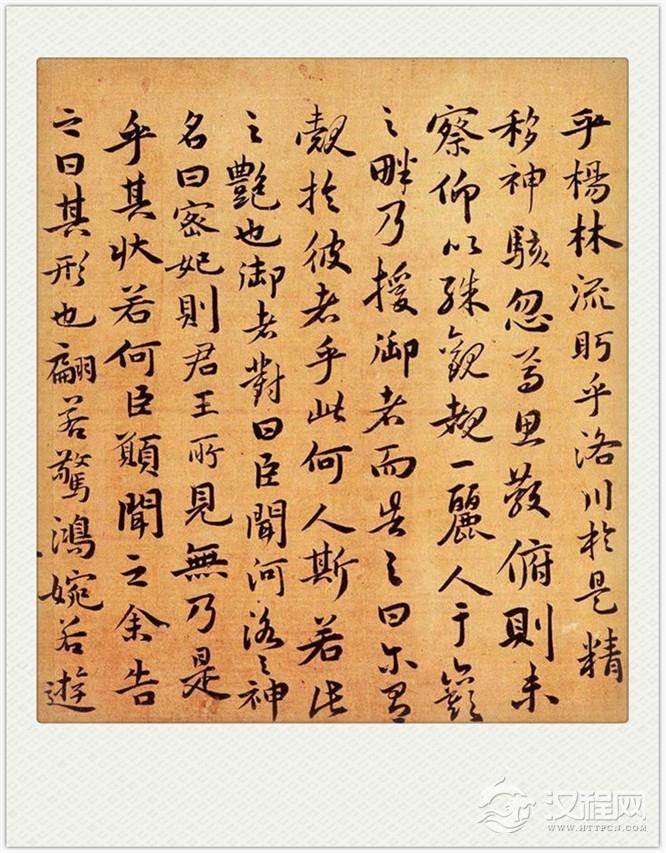 乎楊林流眄乎洛川於是精
移神駭忽焉思散俯則未
察仰以殊觀覩一麗人于巖
之畔乃援御者而告之曰尔有
覿於彼者乎此何人斯若此
之豔也御者對曰臣聞河洛之神
名曰密妃則君王所見無乃是
乎其状若何臣願聞之余告
之曰其形也翩若驚鴻婉若遊
汉程网
WWW.HTTPCN.COM